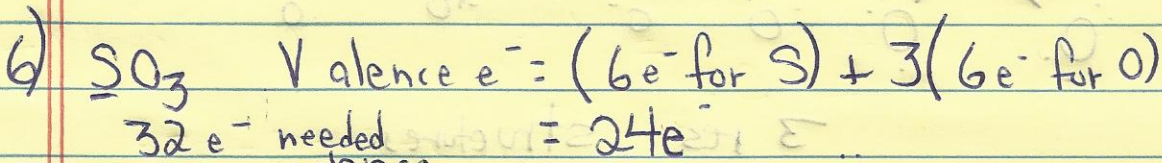 6) SO₃ Valence e⁻ = (6e⁻ for S) + 3(6e⁻ for O)
32 e⁻ needed = 24e⁻